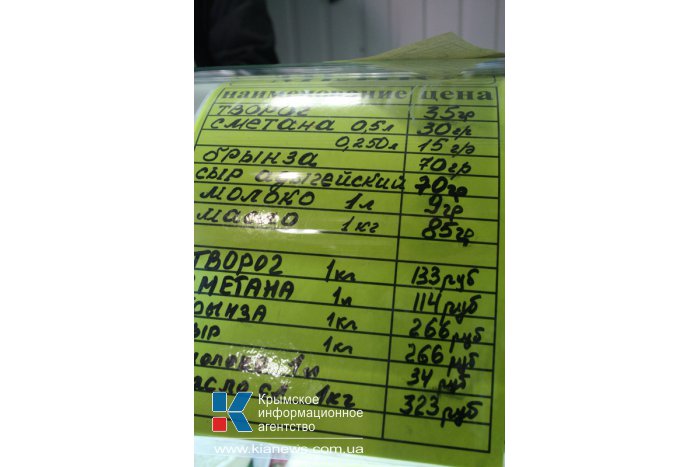 наименование цена
ТВОРОГ 35гр
СМЕТАНА 0,5л 30гр
0,250л 15гр
брынза 70гр
сыр адыгейский 70гр
молоко 1л 9гр
масло 1кг 85гр
ТВОРОГ 1кг 133руб
МЕТАНА 1л 114руб
рынза 1кг 266руб
ыр 1кг 266руб
олоко 1л 34руб
асло сл. 1кг 323руб
К Крымское
информационное
агентство
www.kianews.com.ua